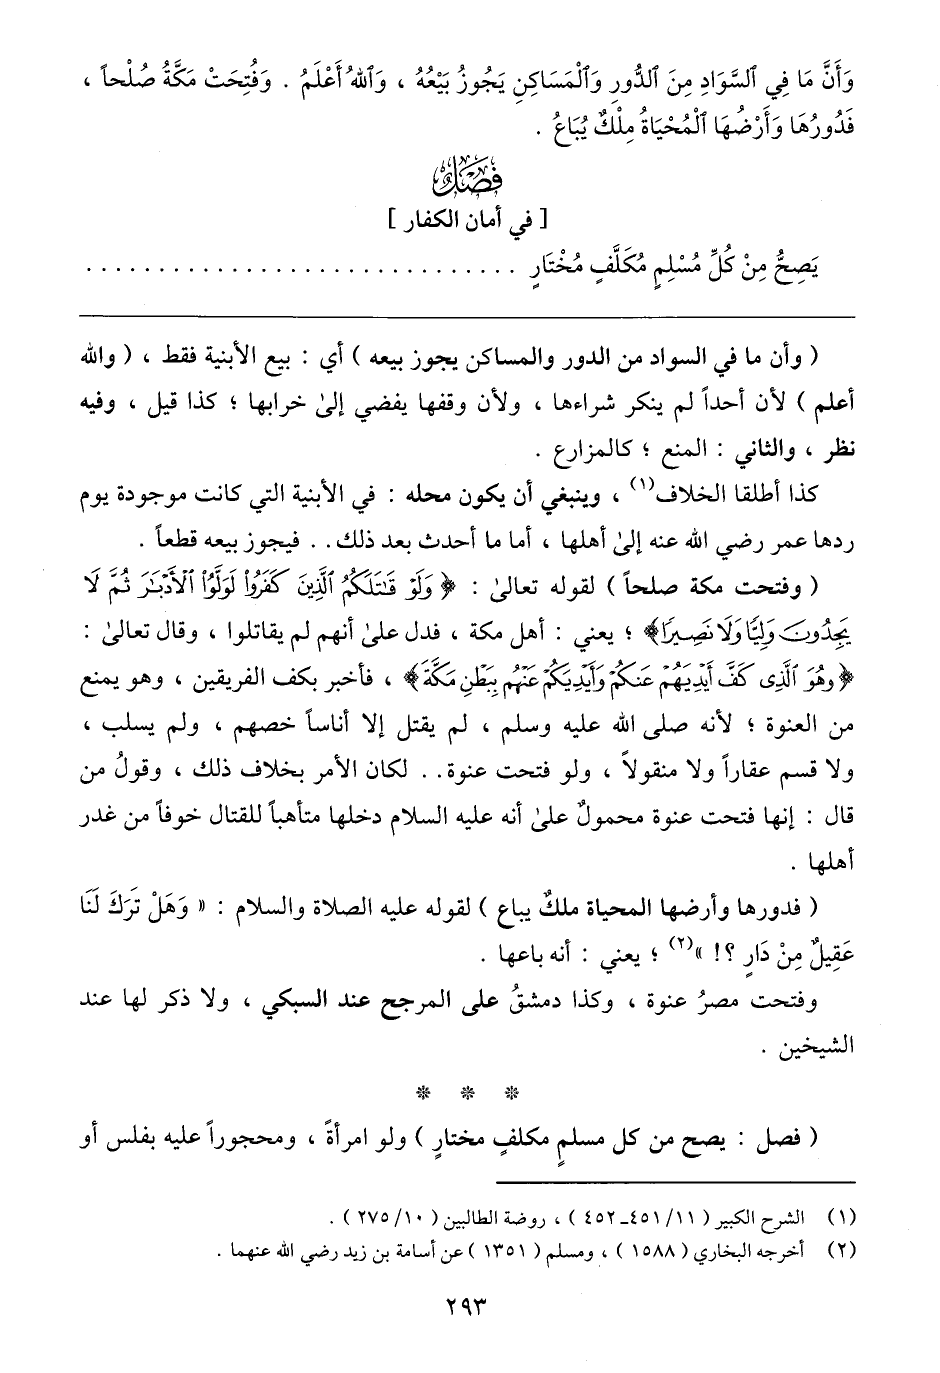 وَأَنَّ مَا فِي ٱلسَّوَادِ مِنَ ٱلدُّورِ وَٱلْمَسَاكِنِ يَجُوزُ بَيْعُهُ ، وَٱللهُ أَعْلَمُ . وَفُتِحَتْ مَكَّةُ صُلْحاً ،
فَدُورُهَا وَأَرْضُهَا ٱلْمُحْيَاةُ مِلْكٌ يُبَاعُ .
فصل
[ في أمان الكفار ]
يَصِحُّ مِنْ كُلِّ مُسْلِمٍ مُكَلَّفٍ مُخْتَارٍ . . . . . . . . . . . . . . . . . . . . . . . . . . . . . .
( وأن ما في السواد من الدور والمساكن يجوز بيعه ) أي : بيع الأبنية فقط ، ( والله
أعلم ) لأن أحداً لم ينكر شراءها ، ولأن وقفها يفضي إلىٰ خرابها ؛ كذا قيل ، وفيه
نظر ، والثاني : المنع ؛ كالمزارع .
كذا أطلقا الخلاف(١) ، وينبغي أن يكون محله : في الأبنية التي كانت موجودة يوم
ردها عمر رضي الله عنه إلىٰ أهلها ، أما ما أحدث بعد ذلك.. فيجوز بيعه قطعاً .
( وفتحت مكة صلحاً ) لقوله تعالىٰ : ﴿ وَلَوْ قَٰتَلَكُمُ ٱلَّذِينَ كَفَرُوا۟ لَوَلَّوُا۟ ٱلْأَدْبَٰرَ ثُمَّ لَا
يَجِدُونَ وَلِيًّا وَلَا نَصِيرًا﴾ ؛ يعني : أهل مكة ، فدل علىٰ أنهم لم يقاتلوا ، وقال تعالىٰ :
﴿ وَهُوَ ٱلَّذِى كَفَّ أَيْدِيَهُمْ عَنكُمْ وَأَيْدِيَكُمْ عَنْهُم بِبَطْنِ مَكَّةَ﴾ ، فأخبر بكف الفريقين ، وهو يمنع
من العنوة ؛ لأنه صلى الله عليه وسلم ، لم يقتل إلا أناساً خصهم ، ولم يسلب ،
ولا قسم عقاراً ولا منقولاً ، ولو فتحت عنوة.. لكان الأمر بخلاف ذلك ، وقولُ من
قال : إنها فتحت عنوة محمولٌ علىٰ أنه عليه السلام دخلها متأهباً للقتال خوفاً من غدر
أهلها .
( فدورها وأرضها المحياة ملكٌ يباع ) لقوله عليه الصلاة والسلام : « وَهَلْ تَرَكَ لَنَا
عَقِيلٌ مِنْ دَارٍ ؟! »(٢) ؛ يعني : أنه باعها .
وفتحت مصرُ عنوة ، وكذا دمشقُ على المرجح عند السبكي ، ولا ذكر لها عند
الشيخين .
* * *
( فصل : يصح من كل مسلمٍ مكلفٍ مختارٍ ) ولو امرأةً ، ومحجوراً عليه بفلس أو
(١) الشرح الكبير ( ١١/ ٤٥١-٤٥٢ ) ، روضة الطالبين ( ١٠/ ٢٧٥ ) .
(٢) أخرجه البخاري ( ١٥٨٨ ) ، ومسلم ( ١٣٥١ ) عن أسامة بن زيد رضي الله عنهما .
٢٩٣